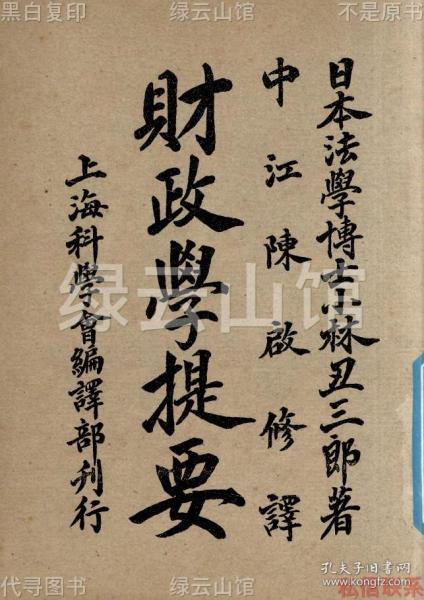 黑白复印
绿云山馆
不是原书
日本法學博士小林丑三郎著
中江陳啟修譯
財政學提要
上海科學會編譯部刋行
绿云山馆
孔夫子旧书网
www.kongfz.com
代寻图书
绿云山馆
私信联系